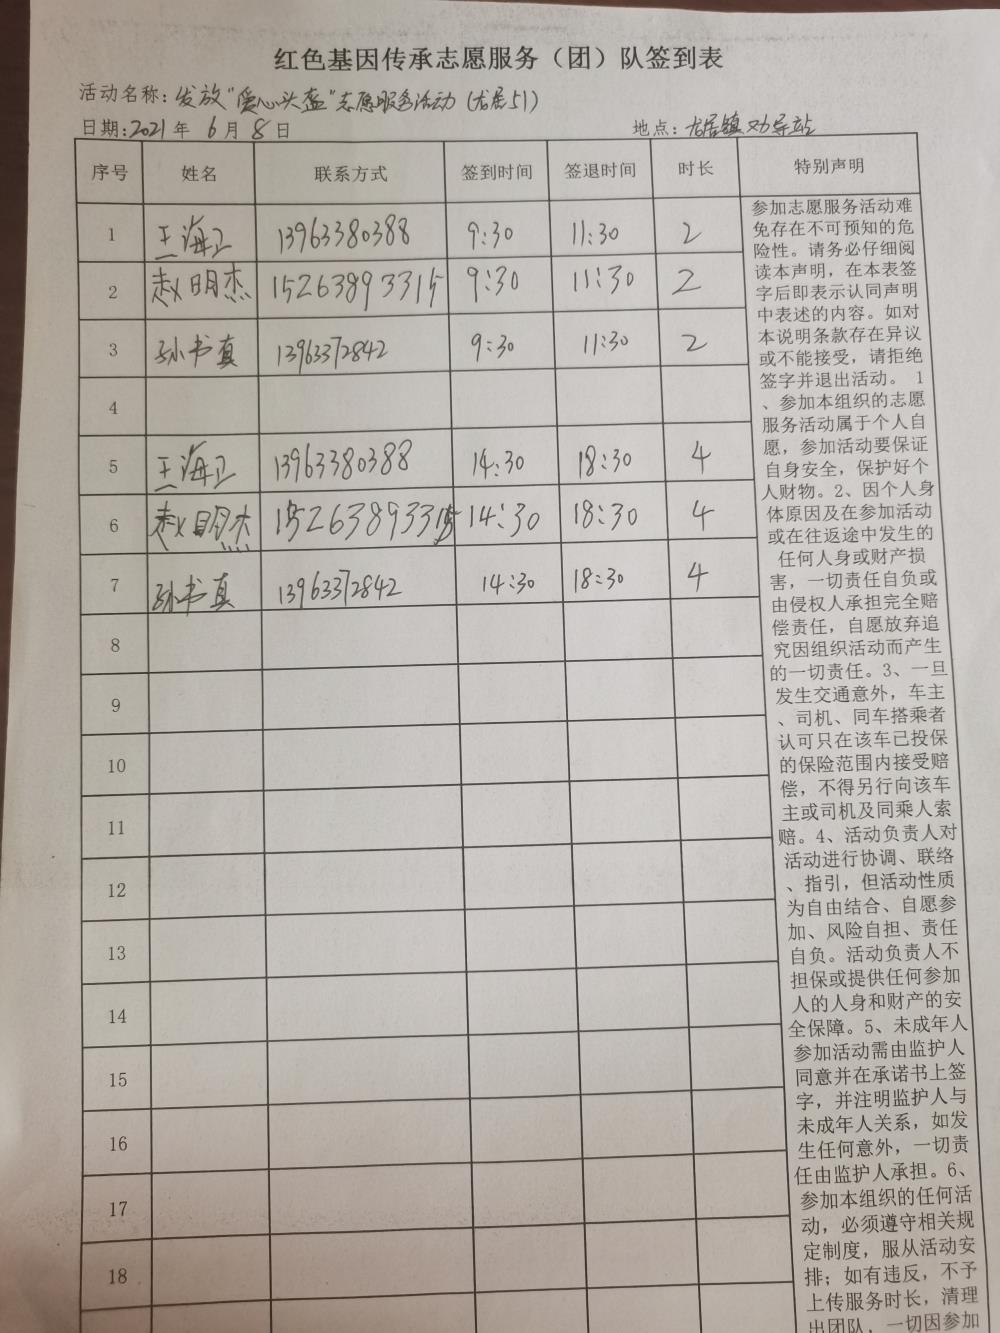 红色基因传承志愿服务（团）队签到表
活动名称：发放“爱心头盔”志愿服务活动（龙居51）
日期：2021年 6月 8日 地点：龙居镇劝导站
序号 姓名 联系方式 签到时间 签退时间 时长 特别声明
1 王海卫 13963380388 9:30 11:30 2
2 赵明杰 15263893315 9:30 11:30 2
3 孙书真 13963372842 9:30 11:30 2
4
5 王海卫 13963380388 14:30 18:30 4
6 赵明杰 15263893315 14:30 18:30 4
7 孙书真 13963372842 14:30 18:30 4
8
9
10
11
12
13
14
15
16
17
18
参加志愿服务活动难
免存在不可预知的危
险性。请务必仔细阅
读本声明，在本表签
字后即表示认同声明
中表述的内容。如对
本说明条款存在异议
或不能接受，请拒绝
签字并退出活动。 1
、参加本组织的志愿
服务活动属于个人自
愿，参加活动要保证
自身安全，保护好个
人财物。2、因个人身
体原因及在参加活动
或在往返途中发生的
任何人身或财产损
害，一切责任自负或
由侵权人承担完全赔
偿责任，自愿放弃追
究因组织活动而产生
的一切责任。3、一旦
发生交通意外，车主
、司机、同车搭乘者
认可只在该车已投保
的保险范围内接受赔
偿，不得另行向该车
主或司机及同乘人索
赔。4、活动负责人对
活动进行协调、联络
、指引，但活动性质
为自由结合、自愿参
加、风险自担、责任
自负。活动负责人不
担保或提供任何参加
人的人身和财产的安
全保障。5、未成年人
参加活动需由监护人
同意并在承诺书上签
字，并注明监护人与
未成年人关系，如发
生任何意外，一切责
任由监护人承担。6、
参加本组织的任何活
动，必须遵守相关规
定制度，服从活动安
排；如有违反，不予
上传服务时长，清理
出团队，一切因参加